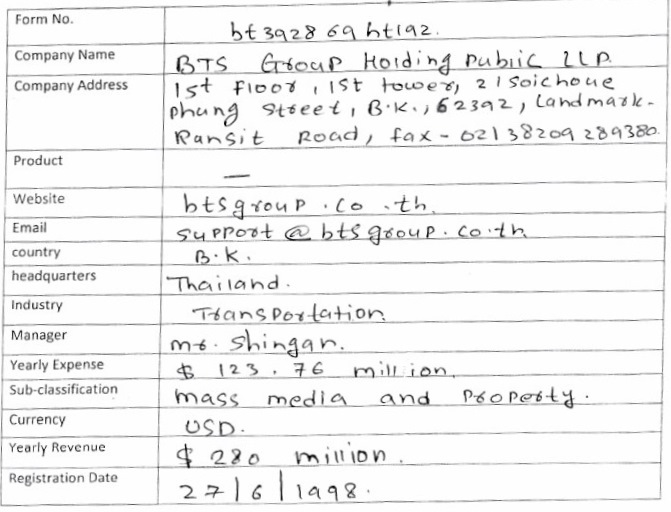 Form No. bt3928 69 ht192.
Company Name BTS Group Holding Public LLP
Company Address 1st floor, 1st tower, 21 Soichoue
phung Street, B.K., 62392, Landmark-
Ransit Road, fax - 02138209289380.
Product —
Website btsgroup.co.th.
Email support@btsgroup.co.th
country B.K.
headquarters Thailand.
Industry Transportation.
Manager mr. Shingan.
Yearly Expense $ 123.76 million.
Sub-classification mass media and Property.
Currency USD.
Yearly Revenue $ 280 million.
Registration Date 27/6/1998.